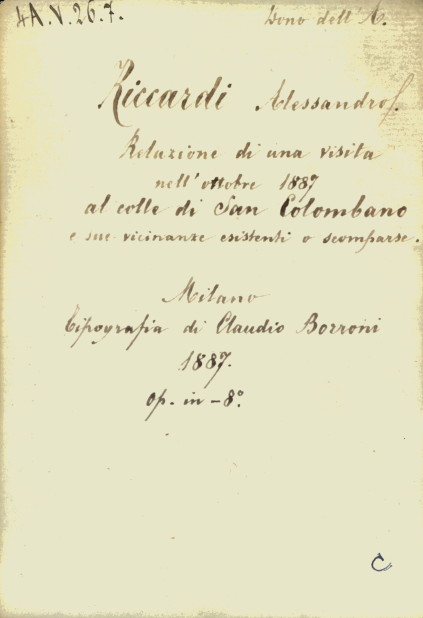 4A.V.26.7.
Dono dell'A.
Riccardi Alessandro.
Relazione di una visita
nell'ottobre 1887
al colle di San Colombano
e sue vicinanze esistenti o scomparse.
Milano
Tipografia di Claudio Borroni
1887.
Op. in-8°.
C